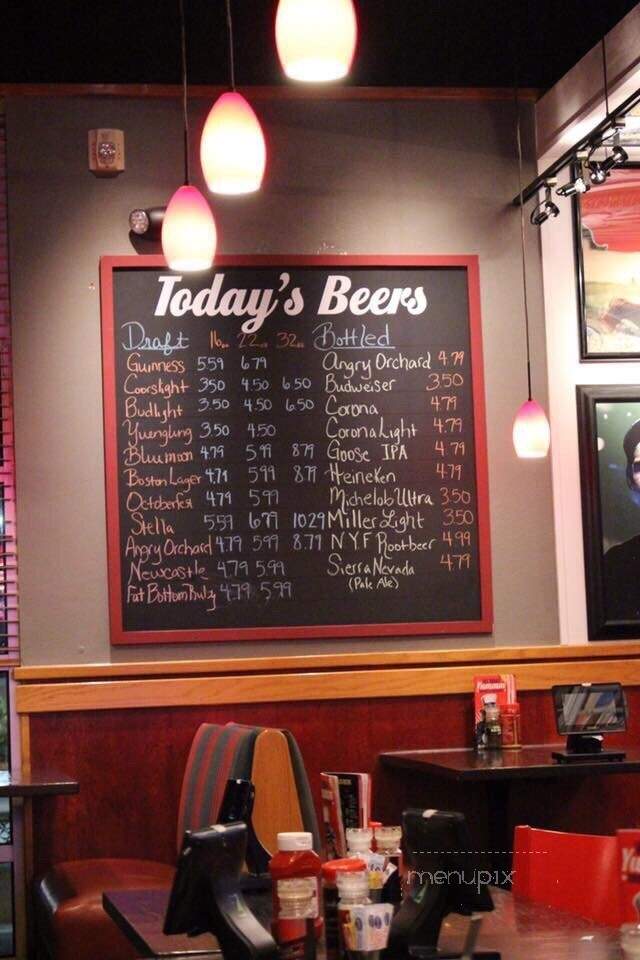 Today's Beers
Draft 16oz 22oz 32oz Bottled
Guinness 5.59 6.79
Coorslight 3.50 4.50 6.50
Budlight 3.50 4.50 6.50
Yuengling 3.50 4.50
Bluemoon 4.79 5.99 8.79
Boston Lager 4.79 5.99 8.79
Octoberfest 4.79 5.99
Stella 5.59 6.79 10.29
Angry Orchard 4.79 5.99 8.79
Newcastle 4.79 5.99
Fat Bottom Rulz 4.79 5.99
Angry Orchard 4.79
Budweiser 3.50
Corona 4.79
Corona Light 4.79
Goose IPA 4.79
Heineken 4.79
Michelob Ultra 3.50
Miller Light 3.50
N.Y.F Rootbeer 4.99
Sierra Nevada 4.79
(Pale Ale)
menupix